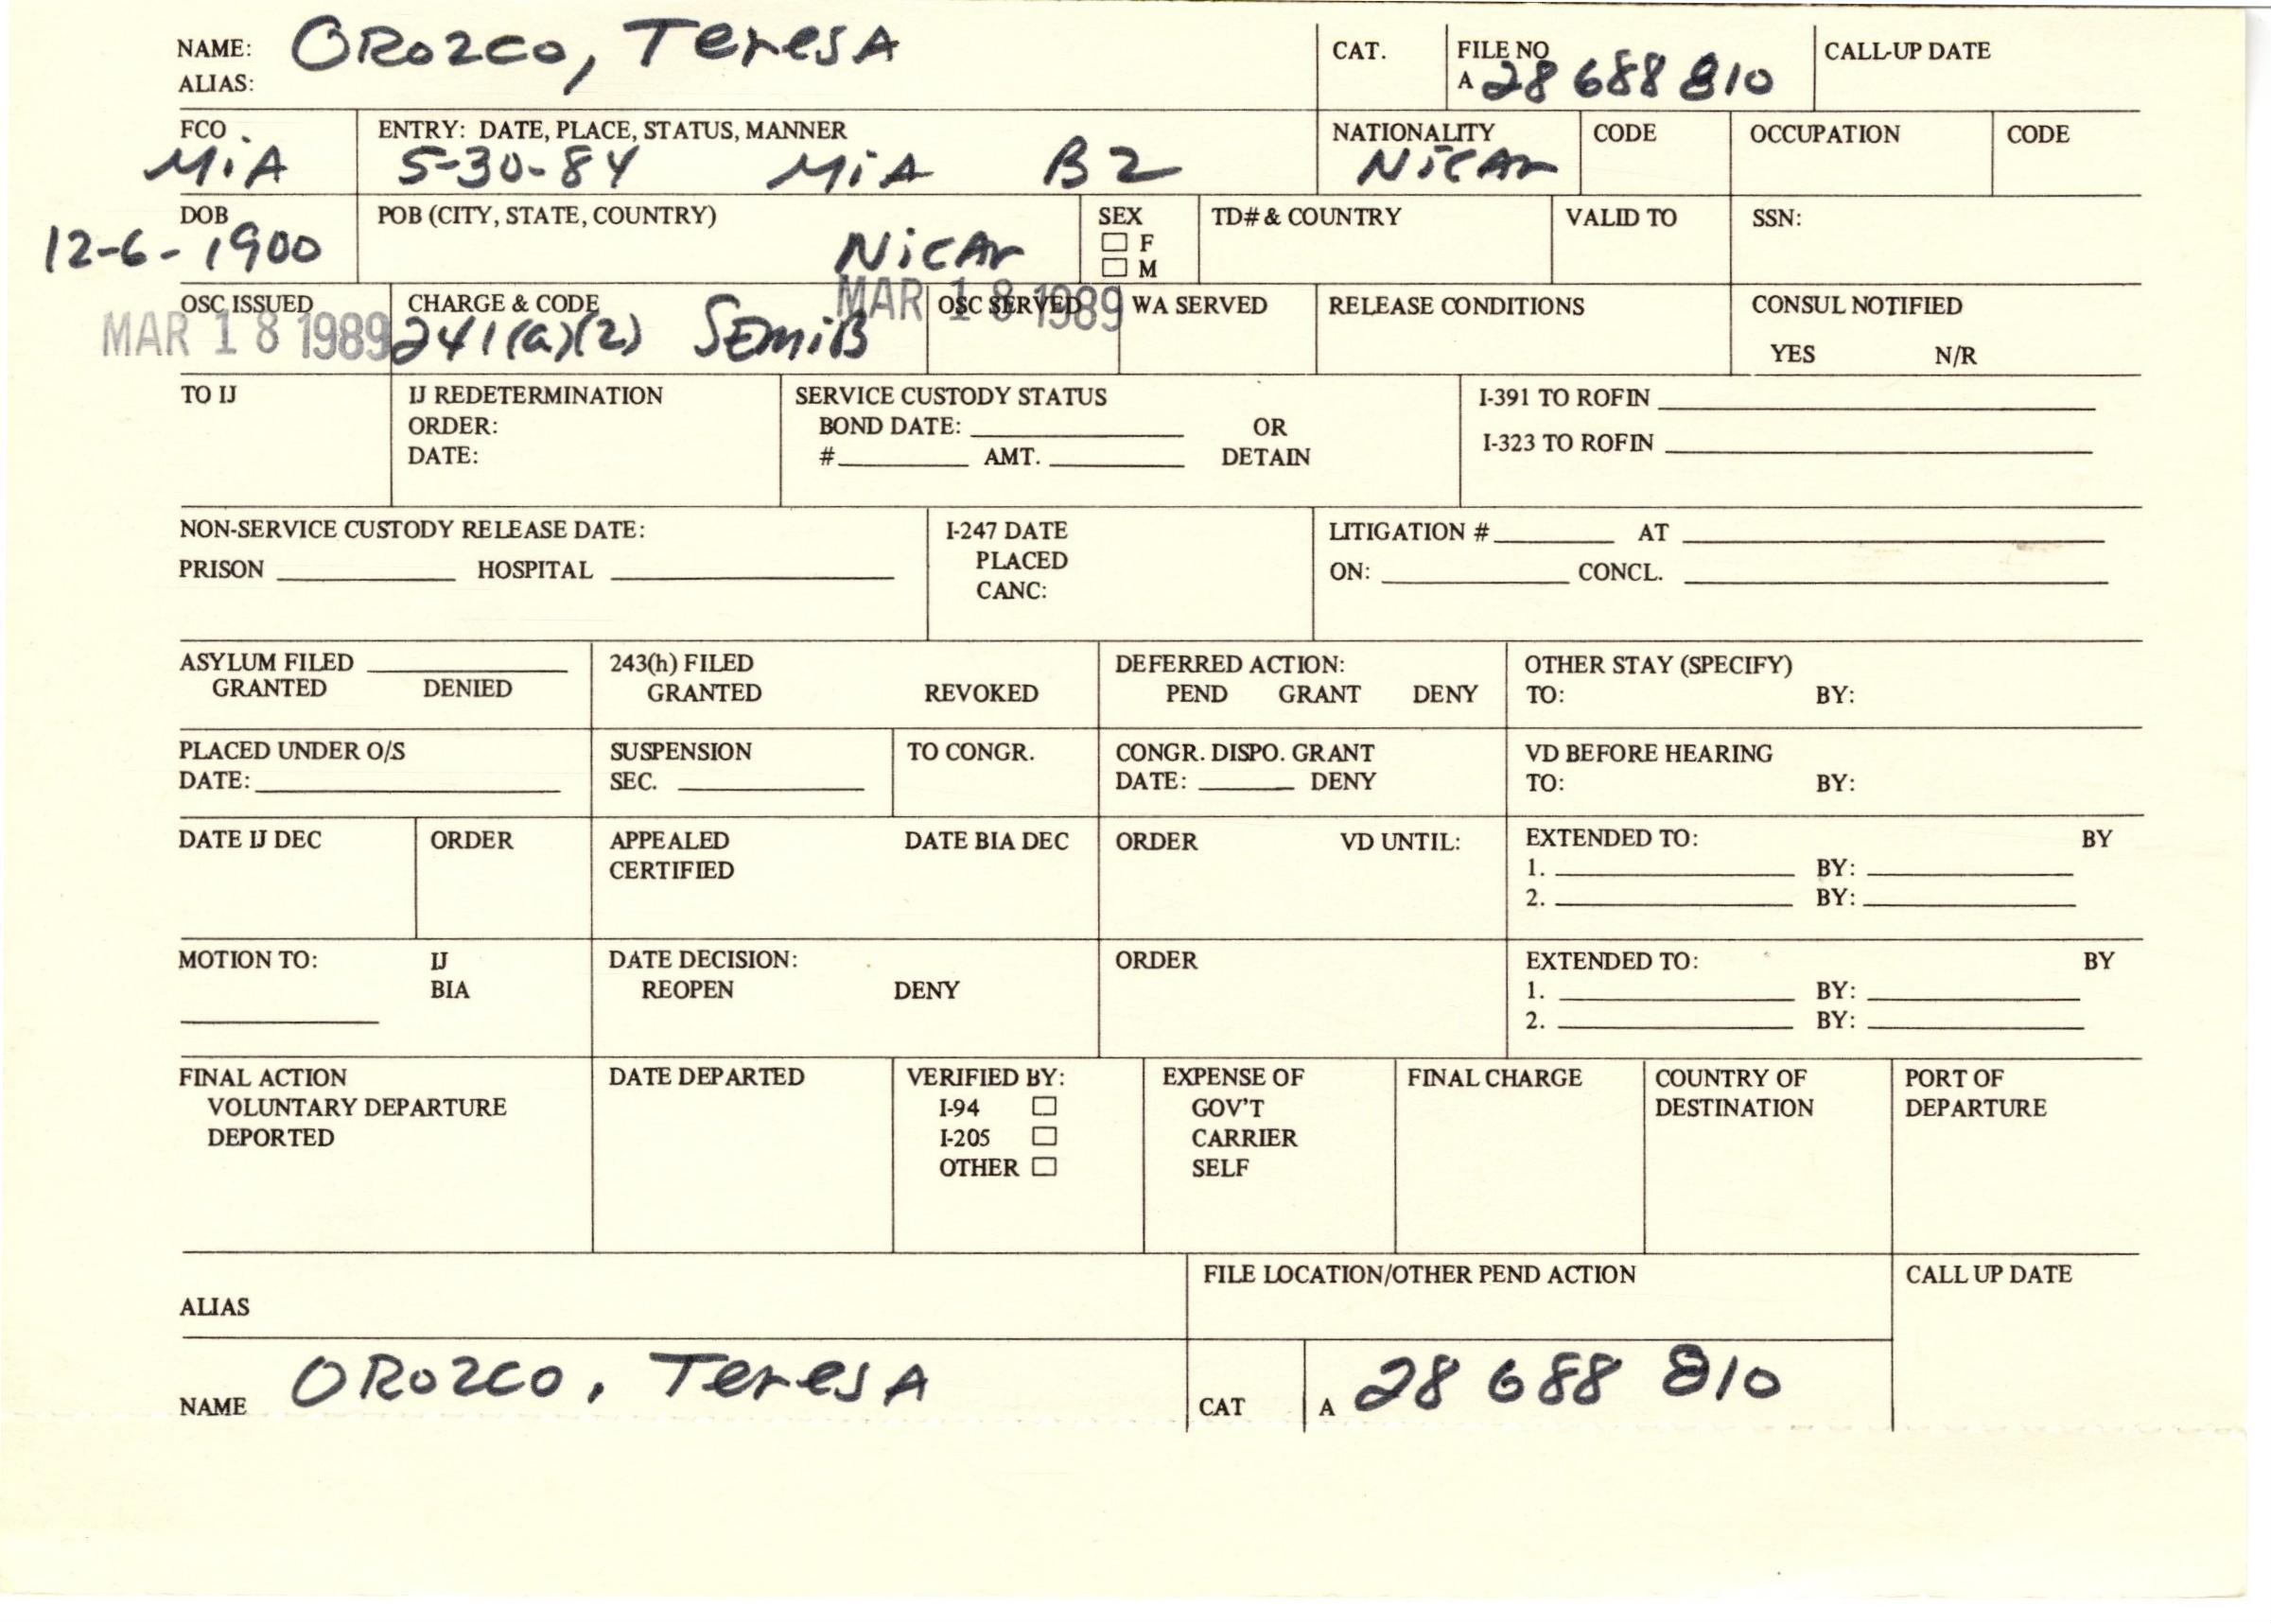 NAME: ORozco, TeresA
ALIAS:
CAT.
FILE NO
A 28 688 810
CALL-UP DATE
FCO
MiA
ENTRY: DATE, PLACE, STATUS, MANNER
5-30-84 MiA B2
NATIONALITY
NiCAr
CODE
OCCUPATION
CODE
DOB
12-6-1900
POB (CITY, STATE, COUNTRY)
NiCAr
SEX
F
M
TD# & COUNTRY
VALID TO
SSN:
OSC ISSUED
MAR 18 1989
CHARGE & CODE
241(a)(2) SEmiB
OSC SERVED
MAR 18 1989
WA SERVED
RELEASE CONDITIONS
CONSUL NOTIFIED
YES N/R
TO IJ
IJ REDETERMINATION
ORDER:
DATE:
SERVICE CUSTODY STATUS
BOND DATE: OR
# AMT. DETAIN
I-391 TO ROFIN
I-323 TO ROFIN
NON-SERVICE CUSTODY RELEASE DATE:
PRISON HOSPITAL
I-247 DATE
PLACED
CANC:
LITIGATION # AT
ON: CONCL.
ASYLUM FILED
GRANTED DENIED
243(h) FILED
GRANTED REVOKED
DEFERRED ACTION:
PEND GRANT DENY
OTHER STAY (SPECIFY)
TO: BY:
PLACED UNDER O/S
DATE:
SUSPENSION
SEC.
TO CONGR.
CONGR. DISPO. GRANT
DATE: DENY
VD BEFORE HEARING
TO: BY:
DATE IJ DEC
ORDER
APPEALED DATE BIA DEC
CERTIFIED
ORDER VD UNTIL:
EXTENDED TO: BY
1. BY:
2. BY:
MOTION TO: IJ
BIA
DATE DECISION:
REOPEN DENY
ORDER
EXTENDED TO: BY
1. BY:
2. BY:
FINAL ACTION
VOLUNTARY DEPARTURE
DEPORTED
DATE DEPARTED
VERIFIED BY:
I-94
I-205
OTHER
EXPENSE OF
GOV'T
CARRIER
SELF
FINAL CHARGE
COUNTRY OF
DESTINATION
PORT OF
DEPARTURE
ALIAS
FILE LOCATION/OTHER PEND ACTION
CALL UP DATE
NAME ORozco, TeresA
CAT
A 28 688 810